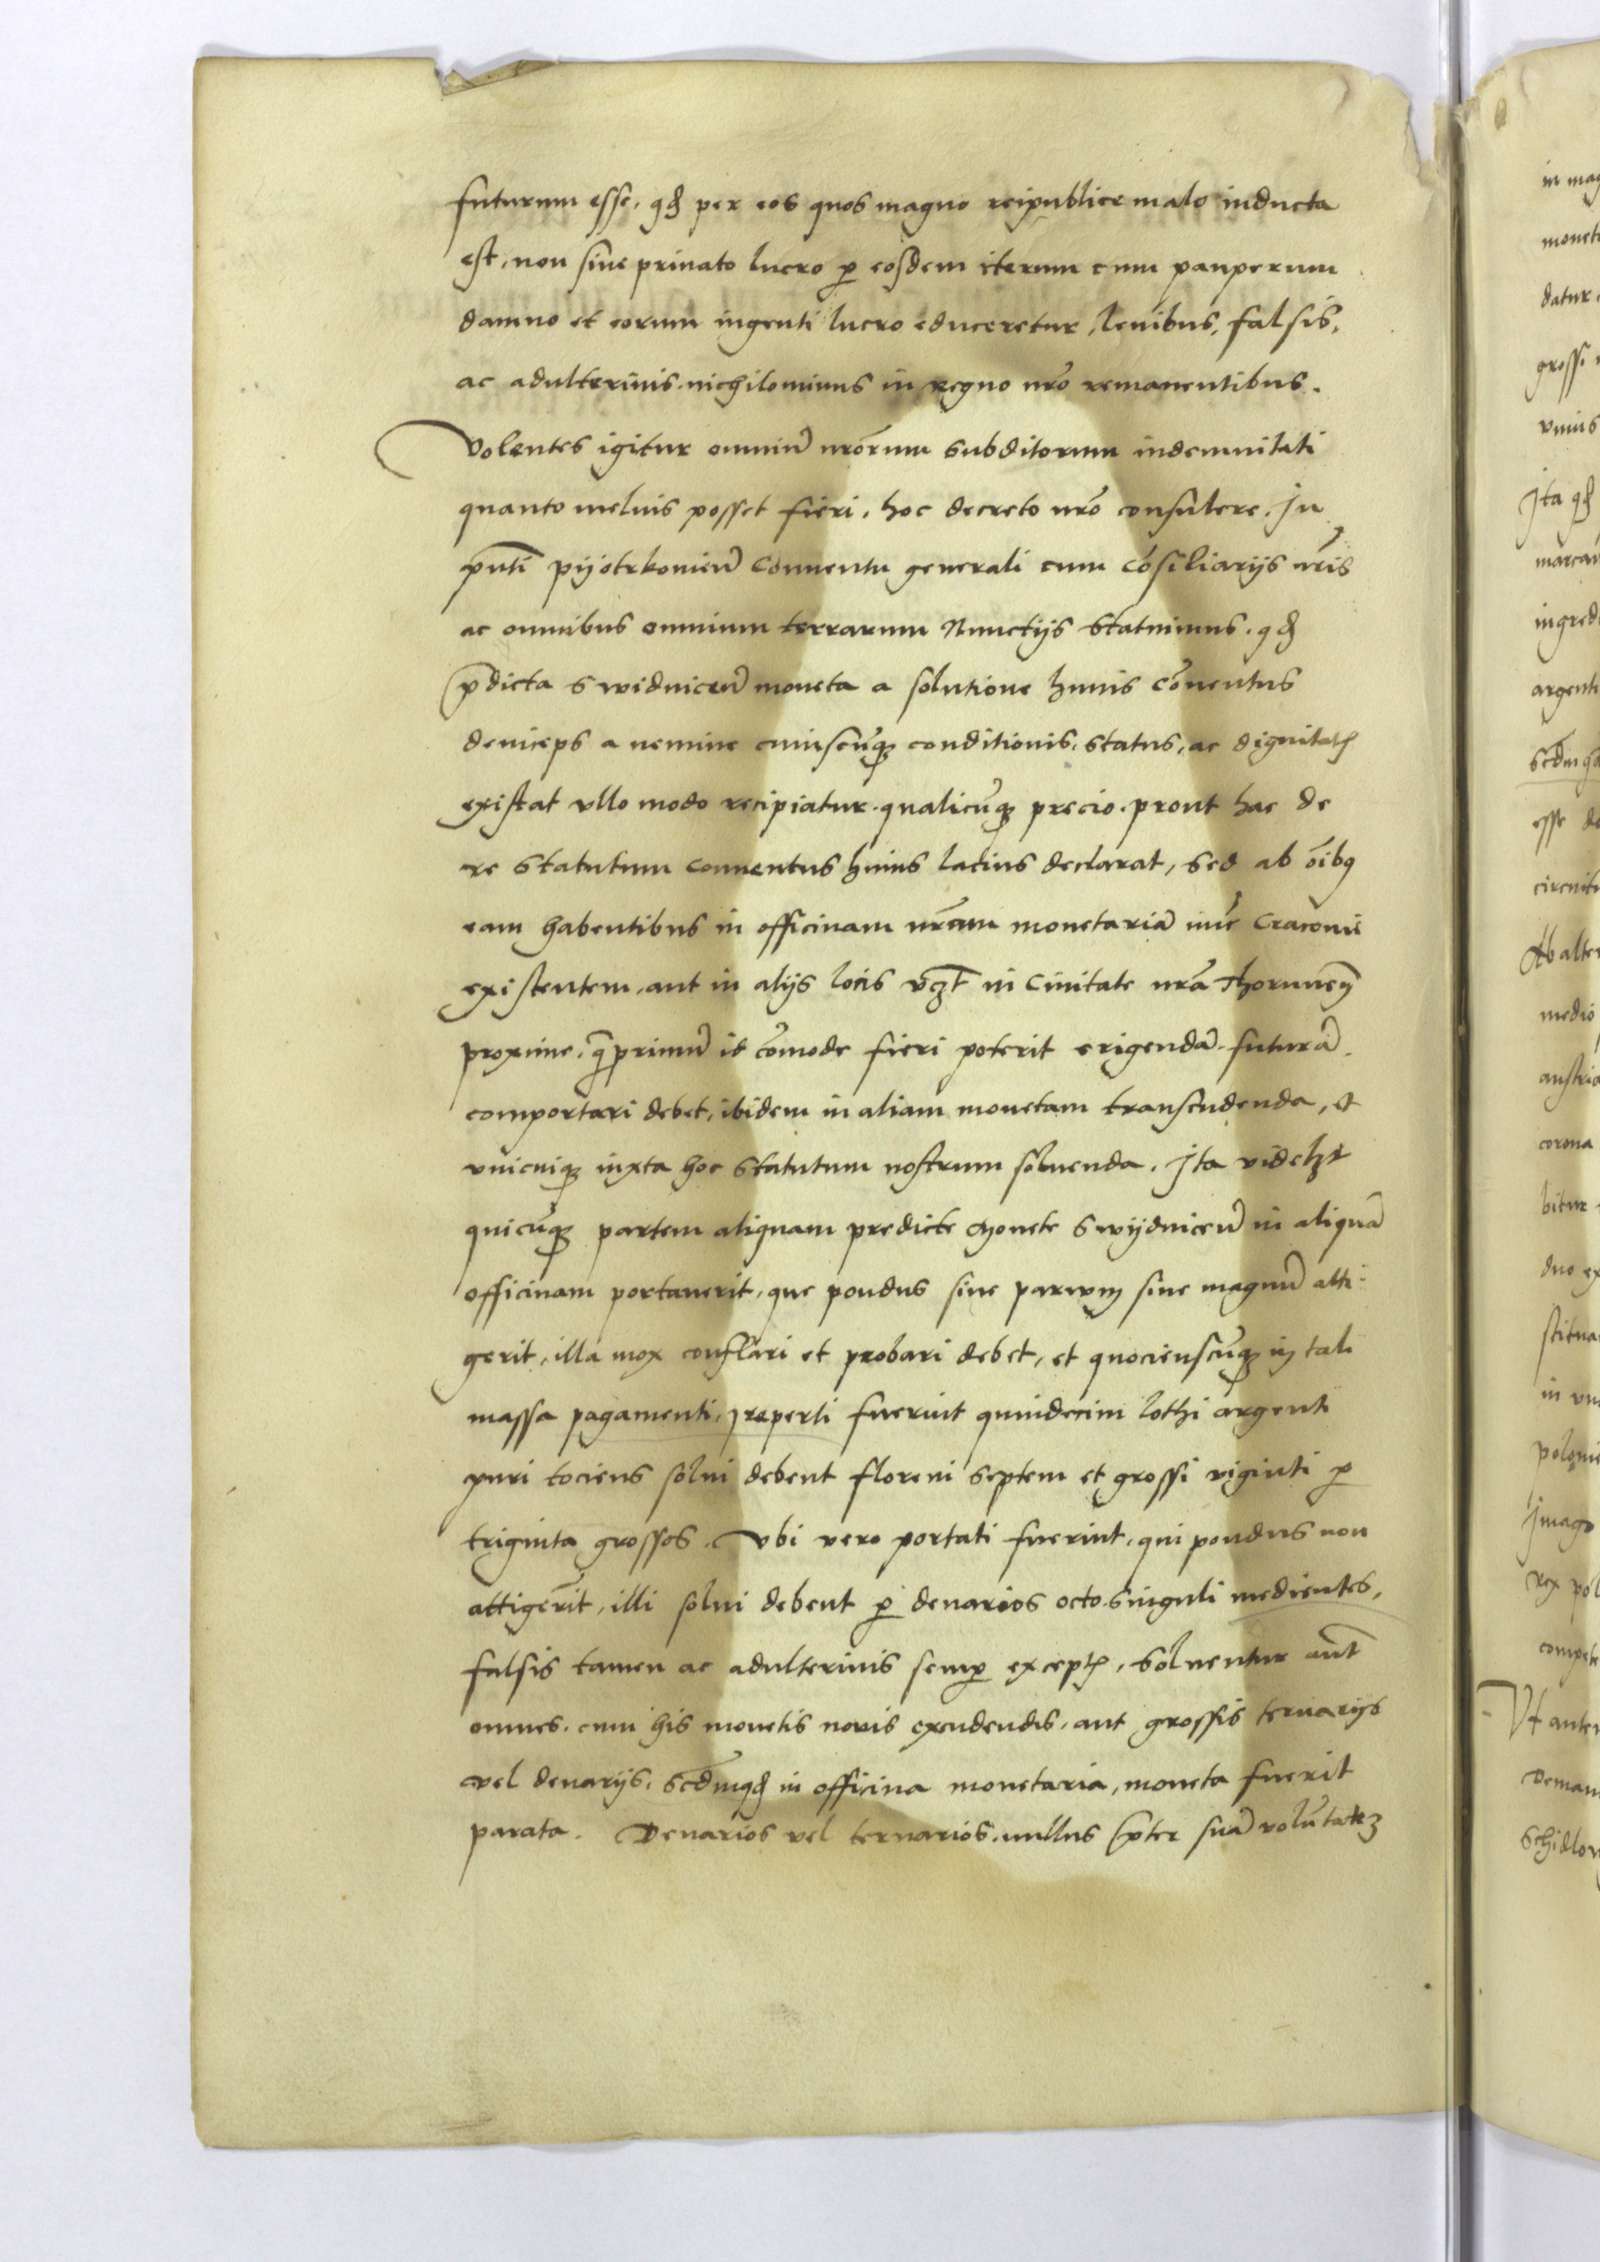 futurum esse, qđ per eos quos magno reipublice malo inducta
est, non sine priuato lucro p eosdem iterum cum pauperum
damno et eorum ingenti lucro educeretur, leuibus, falsis,
ac adulterinis nichilominus in regno nr̃o remanentibus.
Volentes igitur omniū nr̃orum subditorum indemnitati
quanto melius posset fieri, hoc decreto nr̃o consulere. In
pñti pijotrkouieñ Conuentu generali cum cōsiliarijs nr̃is
ac omnibus omnium terrarum Nunctijs statuimus. qđ
p̄dicta swidniceñ moneta a solutione huius cōuentus
deinceps a nemine cuiuscūq conditionis, status, ac dignitatꝭ
existat vllo modo recipiatur. qualicūq precio. prout hac de
re statutum conuentus huius latius declarat, sed ab oībꝫ
eam habentibus in officinam nr̃am monetariā nūc Cracouie
existentem, aut in alijs locis vꝫt in Ciuitate nr̃a Thorunen̄
proxime, q̄ primū id cōmode fieri poterit erigendā futurā.
comportari debet, ibidem in aliam monetam transcudenda, et
vnicuiq iuxta hoc statutum nostrum soluenda. Ita videlꝫt
quicūq partem aliquam predicte Monete swijdniceñ in aliquā
officinam portauerit, que pondus siue parwm siue magnū atti-
gerit, illa mox conflari et probari debet, et quocienscūq in tali
massa pagamenti, reperti fuerint quindecim lothi argenti
puri tociens solui debent floreni septem et grossi viginti p
triginta grossos. Vbi vero portati fuerint, qui pondus non
attigerīt, illi solui debent p denarios octo singuli medientes,
falsis tamen ac adulterinis semp exceptꝭ, soluentur aūt
omnes. cum his monetis nouis excudendis, aut grossis ternarijs
vel denarijs, scd̄mqđ in officina monetaria, moneta fuerit
parata. Denarios vel ternarios nullus p̄ter suā volūtatēꝫ
in
monet
datur
grossi
vnius
Ita qđ
ingred
argenti
esse
circuitu
Ab alter
medio
austria
corona
bitur
duo ex
stitua
in
Imago
Rex pol
compete
Vt anten
Deman
Schidlow